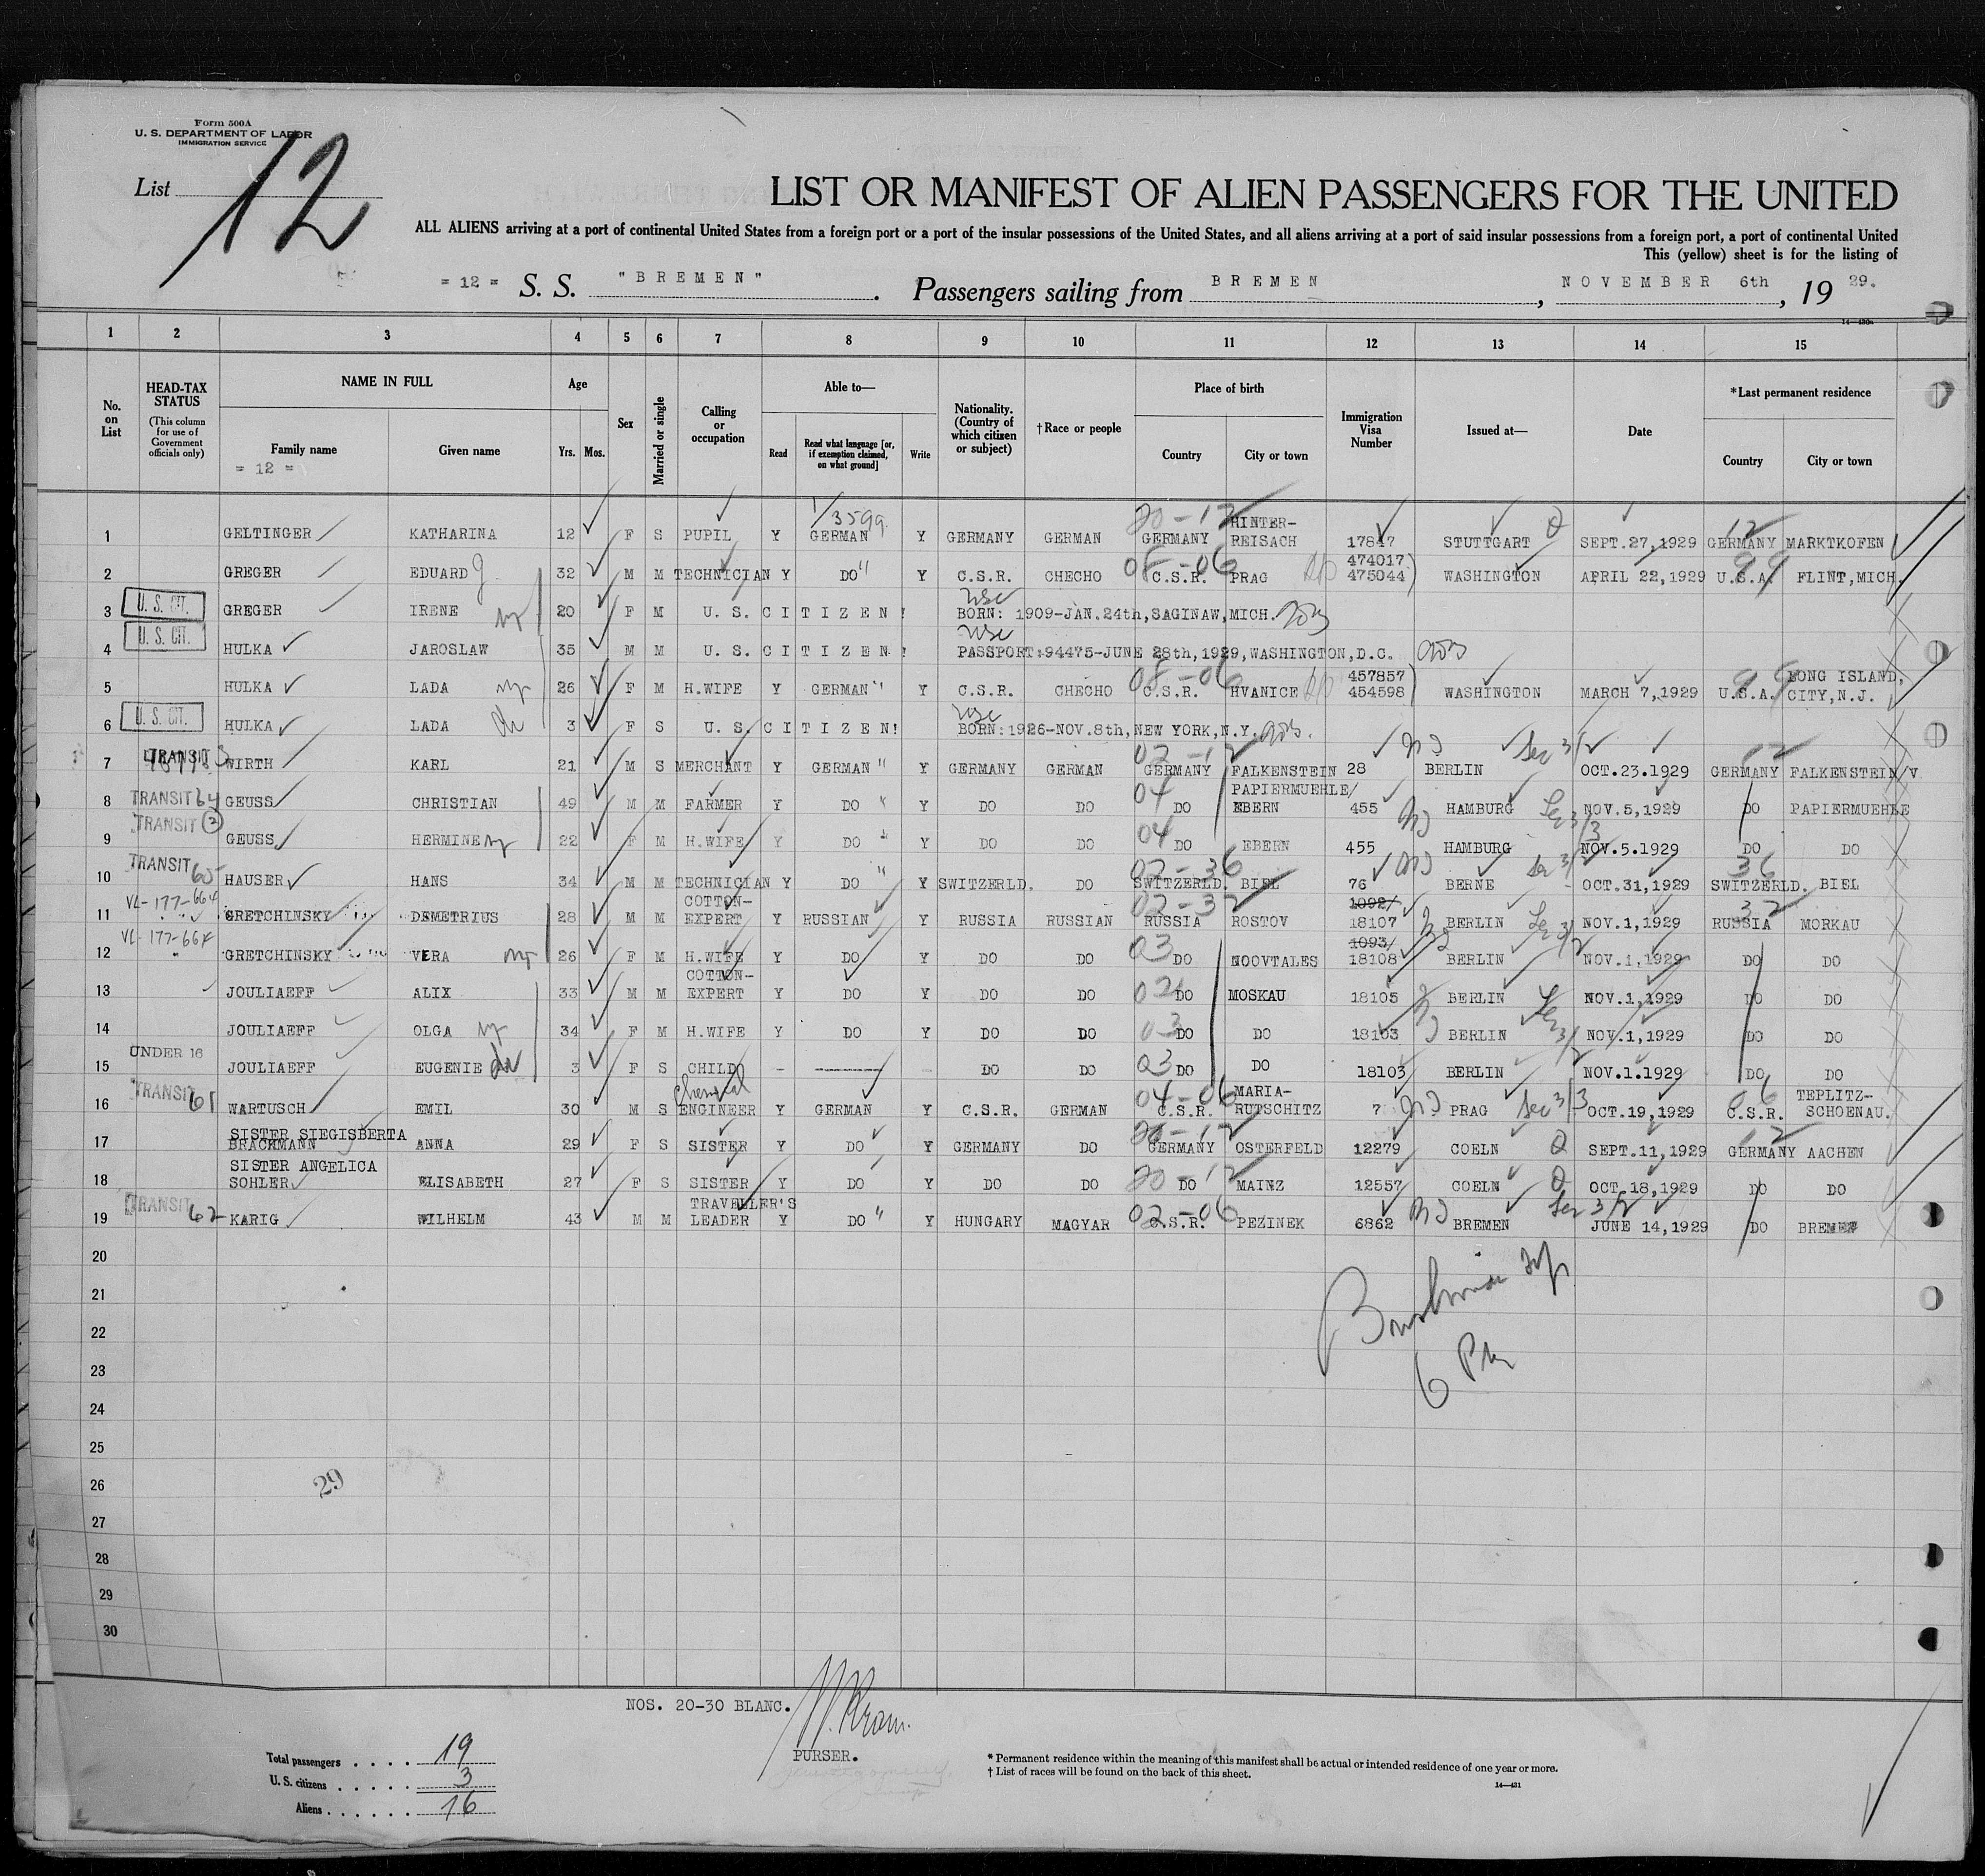 Form 500A
U. S. DEPARTMENT OF LABOR
IMMIGRATION SERVICE
List 12
LIST OR MANIFEST OF ALIEN PASSENGERS FOR THE UNITED
ALL ALIENS arriving at a port of continental United States from a foreign port or a port of the insular possessions of the United States, and all aliens arriving at a port of said insular possessions from a foreign port, a port of continental United
This (yellow) sheet is for the listing of
= 12 = S. S. "BREMEN". Passengers sailing from BREMEN, NOVEMBER 6th, 19 29.
14—430a
1 2 3 4 5 6 7 8 9 10 11 12 13 14 15
No. on List
HEAD-TAX STATUS (This column for use of Government officials only)
NAME IN FULL
Family name
Given name
= 12 =
Age
Yrs. Mos.
Sex
Married or single
Calling or occupation
Able to—
Read
Read what language [or, if exemption claimed, on what ground]
Write
Nationality. (Country of which citizen or subject)
†Race or people
Place of birth
Country
City or town
Immigration Visa Number
Issued at—
Date
*Last permanent residence
Country
City or town
1 GELTINGER KATHARINA 12 F S PUPIL Y GERMAN Y GERMANY GERMAN 20-12 GERMANY HINTER-REISACH 17847 STUTTGART SEPT.27,1929 12 GERMANY MARKTKOFEN
2 GREGER EDUARD 32 M M TECHNICIAN Y DO Y C.S.R. CHECHO 08-06 C.S.R. PRAG 474017 475044) WASHINGTON APRIL 22,1929 99 U.S.A. FLINT,MICH.
3 U. S. CIT. GREGER IRENE 20 F M U. S. CITIZEN! USC BORN: 1909-JAN.24th,SAGINAW,MICH.
4 U. S. CIT. HULKA JAROSLAW 35 M M U. S. CITIZEN! USC PASSPORT:94475-JUNE 28th,1929,WASHINGTON,D.C.
5 HULKA LADA 26 F M H.WIFE Y GERMAN Y C.S.R. CHECHO 08-06 C.S.R. HVANICE 457857 454598) WASHINGTON MARCH 7,1929 99 U.S.A. LONG ISLAND, CITY,N.J.
6 U. S. CIT. HULKA LADA 3 F S U. S. CITIZEN! USC BORN:1926-NOV.8th,NEW YORK,N.Y.
7 TRANSIT WIRTH KARL 21 M S MERCHANT Y GERMAN Y GERMANY GERMAN 02-12 GERMANY FALKENSTEIN 28 BERLIN Sec 3/2 OCT.23.1929 12 GERMANY FALKENSTEIN/V
8 TRANSIT 64 GEUSS CHRISTIAN 49 M M FARMER Y DO Y DO DO 04 DO PAPIERMUEHLE/ EBERN 455 HAMBURG Sec 3/3 NOV.5,1929 DO PAPIERMUEHLE
9 TRANSIT GEUSS HERMINE 22 F M H.WIFE Y DO Y DO DO 04 DO EBERN 455 HAMBURG NOV.5.1929 DO DO
10 TRANSIT 65 HAUSER HANS 34 M M TECHNICIAN Y DO Y SWITZERLD. DO 02-36 SWITZERLD. BIEL 76 BERNE Sec 3/2 OCT.31,1929 36 SWITZERLD. BIEL
11 VL-177-664 GRETCHINSKY DEMETRIUS 28 M M COTTON-EXPERT Y RUSSIAN Y RUSSIA RUSSIAN 02-32 RUSSIA ROSTOV 1092/ 18107 BERLIN Sec 3/2 NOV.1,1929 32 RUSSIA MORKAU
12 VL-177-664 GRETCHINSKY VERA 26 F M H.WIFE Y DO Y DO DO 03 DO NOOVTALES 1093/ 18108 BERLIN NOV.1,1929 DO DO
13 JOULIAEFF ALIX 33 M M COTTON-EXPERT Y DO Y DO DO 02 DO MOSKAU 18105 BERLIN NOV.1,1929 DO DO
14 JOULIAEFF OLGA 34 F M H.WIFE Y DO Y DO DO 03 DO DO 18103 BERLIN Sec 3/2 NOV.1,1929 DO DO
15 UNDER 16 JOULIAEFF EUGENIE 3 F S CHILD - ------- DO DO 03 DO DO 18103 BERLIN NOV.1.1929 DO DO
16 TRANSIT 61 WARTUSCH EMIL 30 M S Chemical ENGINEER Y GERMAN Y C.S.R. GERMAN 04-06 C.S.R. MARIA-RUTSCHITZ 7 PRAG Sec 3/3 OCT.19,1929 06 C.S.R. TEPLITZ-SCHOENAU.
17 SISTER SIEGISBERTA BRACKMANN ANNA 29 F S SISTER Y DO Y GERMANY DO 20-12 GERMANY OSTERFELD 12279 COELN SEPT.11,1929 12 GERMANY AACHEN
18 SISTER ANGELICA SOHLER ELISABETH 27 F S SISTER Y DO Y DO DO 20-12 DO MAINZ 12557 COELN OCT.18,1929 DO DO
19 TRANSIT 62 KARIG WILHELM 43 M M TRAVELLER'S LEADER Y DO Y HUNGARY MAGYAR 02-06 C.S.R. PEZINEK 6862 BREMEN Sec 3/2 JUNE 14,1929 DO BREMEN
20
21
22
23
24
25
26
29
27
28
29
30
NOS. 20-30 BLANC.
PURSER.
Total passengers . . . . 19
U. S. citizens . . . . . 3
Aliens . . . . . . 16
* Permanent residence within the meaning of this manifest shall be actual or intended residence of one year or more.
† List of races will be found on the back of this sheet.
14—431